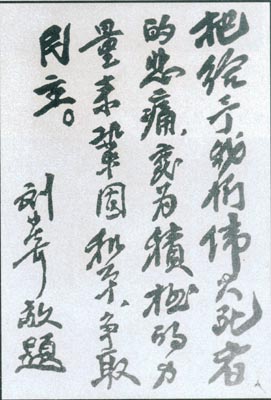 把给于我们伟大死者
的悲痛,变为積极的力
量来鞏固和平、争取
民主。
刘少奇敬题